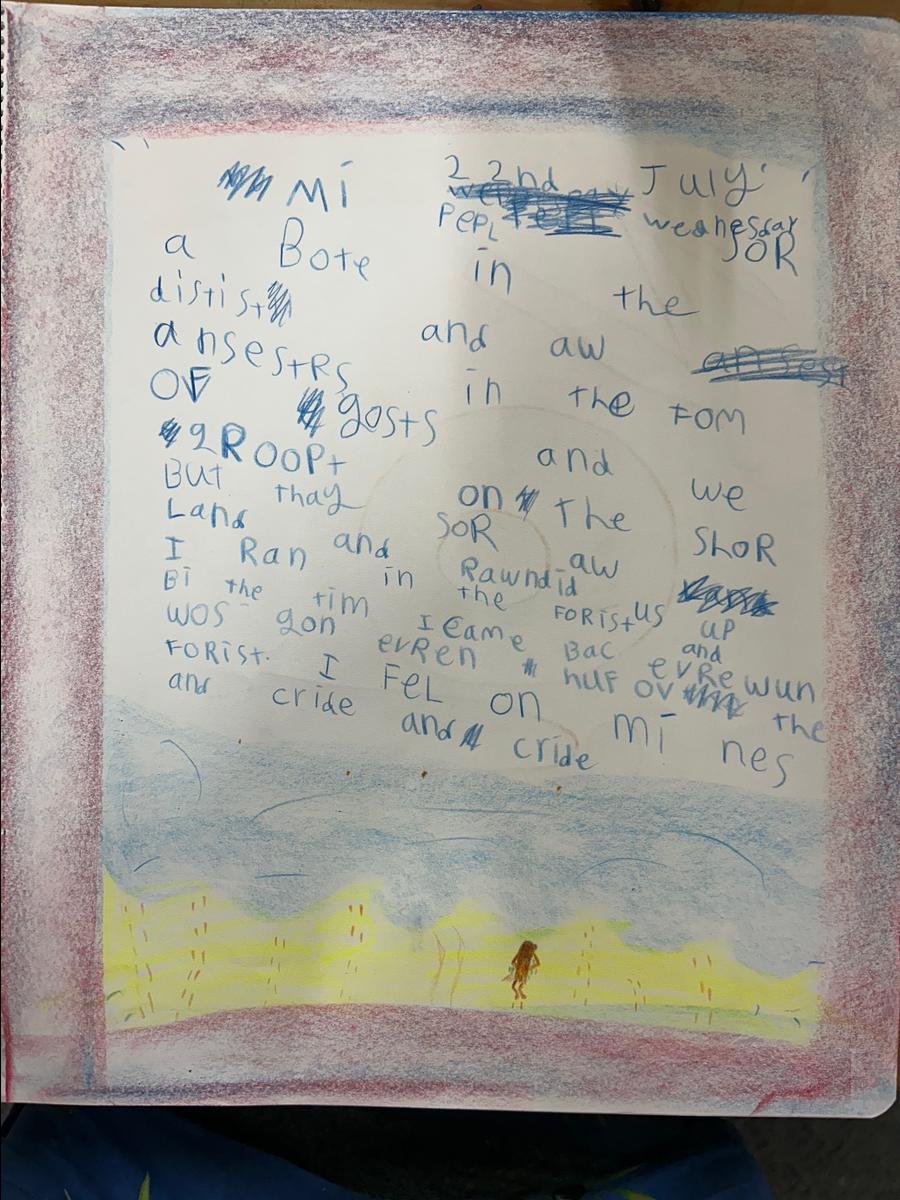 22nd July
wednesday
Mi PEPL SOR
a Bote in the
distist and aw
ansestRs in the FOM
OF gosts and we
gROOPt on the ShoR
BUT thay SOR aw
Land and Rawndid us UP
I Ran in the FORist and
Bi the tim I came Bac evRe wun
wos gon evRen nuf ov the
FORist. I FeL on mi nes
and cride and cride